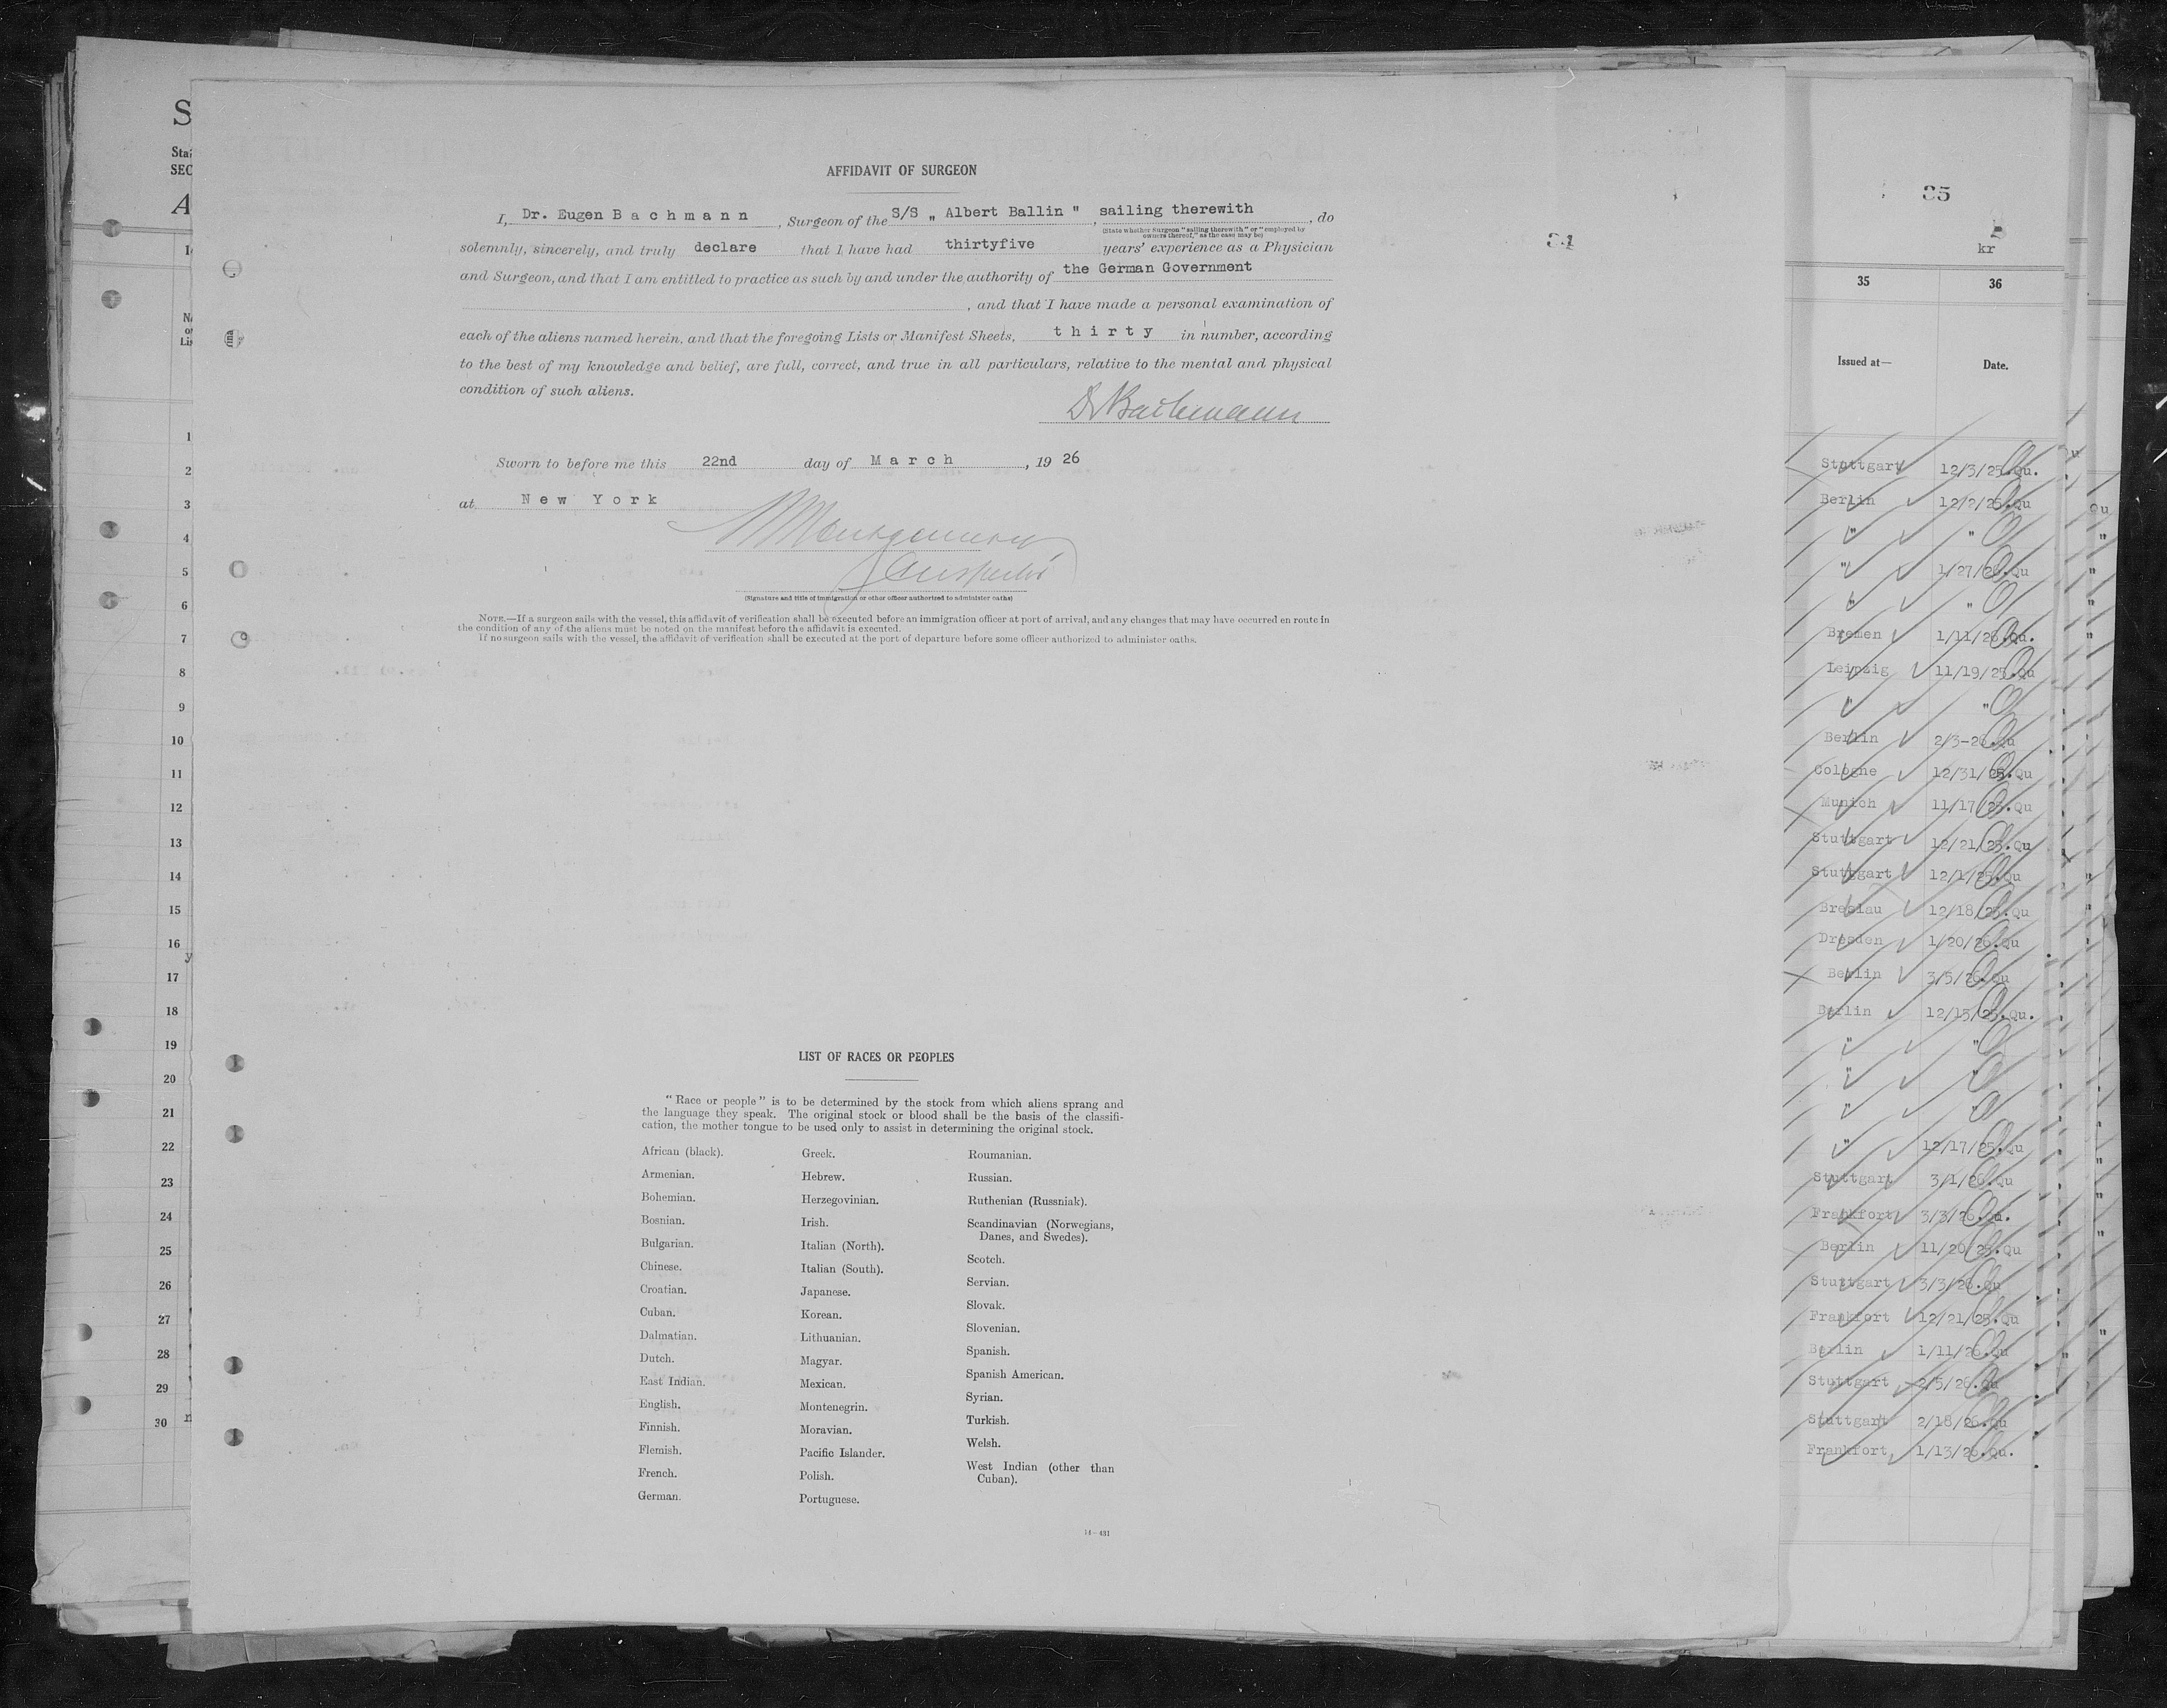 AFFIDAVIT OF SURGEON
I, Dr. Eugen Bachmann, Surgeon of the S/S „ Albert Ballin ", sailing therewith, do
(State whether Surgeon "sailing therewith" or "employed by owners thereof," as the case may be)
solemnly, sincerely, and truly declare that I have had thirtyfive years' experience as a Physician
and Surgeon, and that I am entitled to practice as such by and under the authority of the German Government
, and that I have made a personal examination of
each of the aliens named herein, and that the foregoing Lists or Manifest Sheets, thirty in number, according
to the best of my knowledge and belief, are full, correct, and true in all particulars, relative to the mental and physical
condition of such aliens.
Dr Bachmann
Sworn to before me this 22nd day of March, 19 26
at New York
Montgomery
Inspector
(Signature and title of immigration or other officer authorized to administer oaths)
NOTE.—If a surgeon sails with the vessel, this affidavit of verification shall be executed before an immigration officer at port of arrival, and any changes that may have occurred en route in
the condition of any of the aliens must be noted on the manifest before the affidavit is executed.
If no surgeon sails with the vessel, the affidavit of verification shall be executed at the port of departure before some officer authorized to administer oaths.
LIST OF RACES OR PEOPLES
"Race or people" is to be determined by the stock from which aliens sprang and
the language they speak. The original stock or blood shall be the basis of the classifi-
cation, the mother tongue to be used only to assist in determining the original stock.
African (black).
Armenian.
Bohemian.
Bosnian.
Bulgarian.
Chinese.
Croatian.
Cuban.
Dalmatian.
Dutch.
East Indian.
English.
Finnish.
Flemish.
French.
German.
Greek.
Hebrew.
Herzegovinian.
Irish.
Italian (North).
Italian (South).
Japanese.
Korean.
Lithuanian.
Magyar.
Mexican.
Montenegrin.
Moravian.
Pacific Islander.
Polish.
Portuguese.
Roumanian.
Russian.
Ruthenian (Russniak).
Scandinavian (Norwegians,
Danes, and Swedes).
Scotch.
Servian.
Slovak.
Slovenian.
Spanish.
Spanish American.
Syrian.
Turkish.
Welsh.
West Indian (other than
Cuban).
14—431
34
S
Stat
SEC
A
1
2
3
4
5
6
7
8
9
10
11
12
13
14
15
16
17
18
19
20
21
22
23
24
25
26
27
28
29
30
35
kr
35 36
Issued at— Date.
Stuttgart 12/3/25.Qu.
Berlin 12/2/25.Qu
" "
" 1/27/26.Qu
" "
Bremen 1/11/26.Qu.
Leipzig 11/19/25.Qu
" "
Berlin 2/3-26.Qu
Cologne 12/31/25.Qu
Munich 11/17/25.Qu
Stuttgart 12/21/25.Qu
Stuttgart 12/1/25.Qu
Breslau 12/18/25.Qu
Dresden 1/20/26.Qu
Berlin 3/5/26.Qu
Berlin 12/15/25.Qu.
" "
" "
" "
" 12/17/25.Qu
Stuttgart 3/1/26.Qu
Frankfort 3/3/26.Qu.
Berlin 11/20/25.Qu
Stuttgart 3/3/26.Qu
Frankfort 12/21/25.Qu
Berlin 1/11/26.Qu
Stuttgart 2/5/26.Qu
Stuttgart 2/18/26.Qu
Frankfort 1/13/26.Qu.